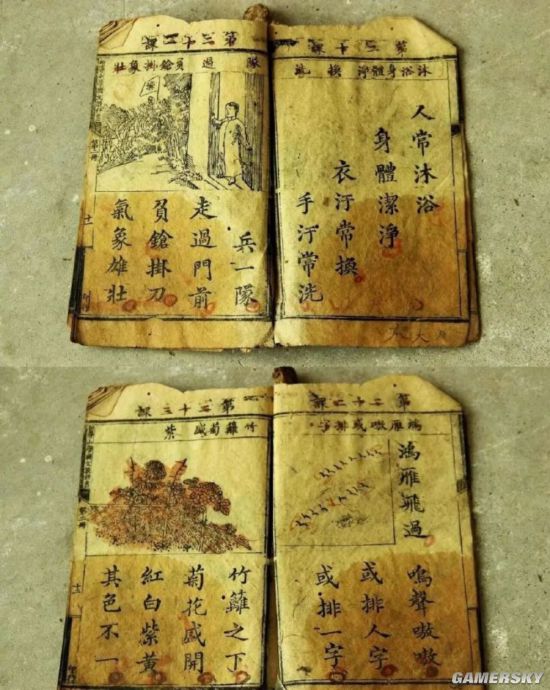 第二十課
沐浴身體淨換洗
人常沐浴
身體潔淨
衣汙常換
手汙常洗
第二十一課
隊過負鎗掛象壯
兵一隊
走過門前
負鎗掛刀
氣象雄壯
第二十二課
鴻雁嗷或排字
鴻雁飛過
鳴聲嗷嗷
或排人字
或排一字
第二十三課
竹籬菊盛紫
竹籬之下
菊花盛開
紅白紫黃
其色不一
GAMERSKY